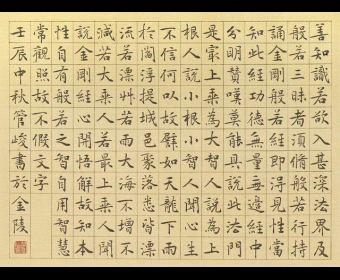 善知識若欲入甚深法界及
般若三昧者須修般若行持
誦金剛般若經即得見性當
知此經功德無量無邊經中
分明贊嘆莫能具說此法門
是最上乘為大智人說為上
根人說小根小智人聞心生
不信何以故譬如天龍下雨
於閻浮提城邑聚落悉皆漂
流若漂艸若雨大海不增不
減若大乘人若最上乘人聞
說金剛經心開悟解故知本
性自有般若之智自用智慧
常觀照故不假文字
壬辰中秋管峻書於金陵